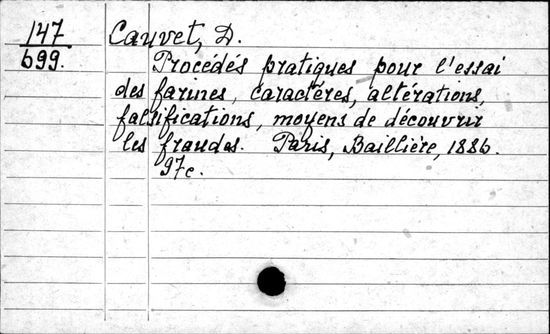 147 Cauvet, D.
699. Procédés pratiques pour l'essai
des farines, caractères, altérations,
falsifications, moyens de découvrir
les fraudes. Paris, Baillière, 1886.
97c.